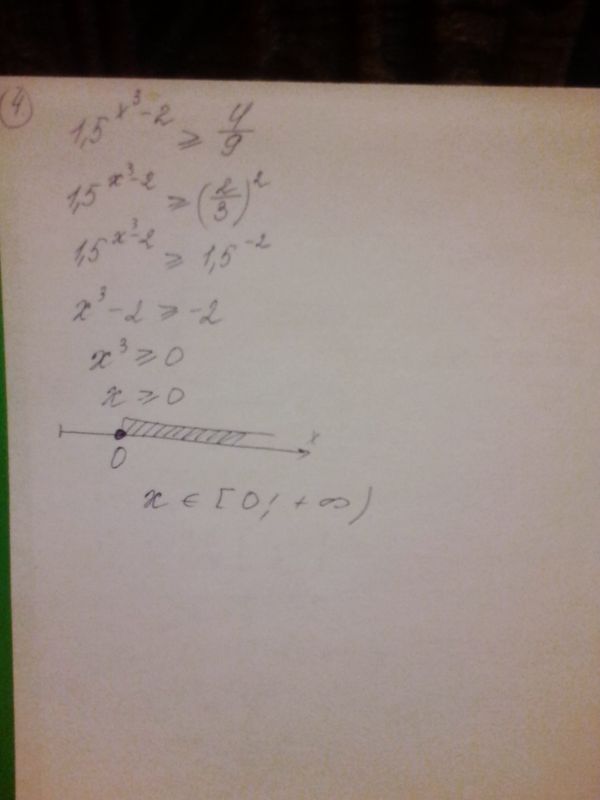 4
1,5^(x³-2) ≥ 4/9
1,5^(x³-2) ≥ (2/3)²
1,5^(x³-2) ≥ 1,5^(-2)
x³-2 ≥ -2
x³ ≥ 0
x ≥ 0
x
0
x ∈ [0; +∞)